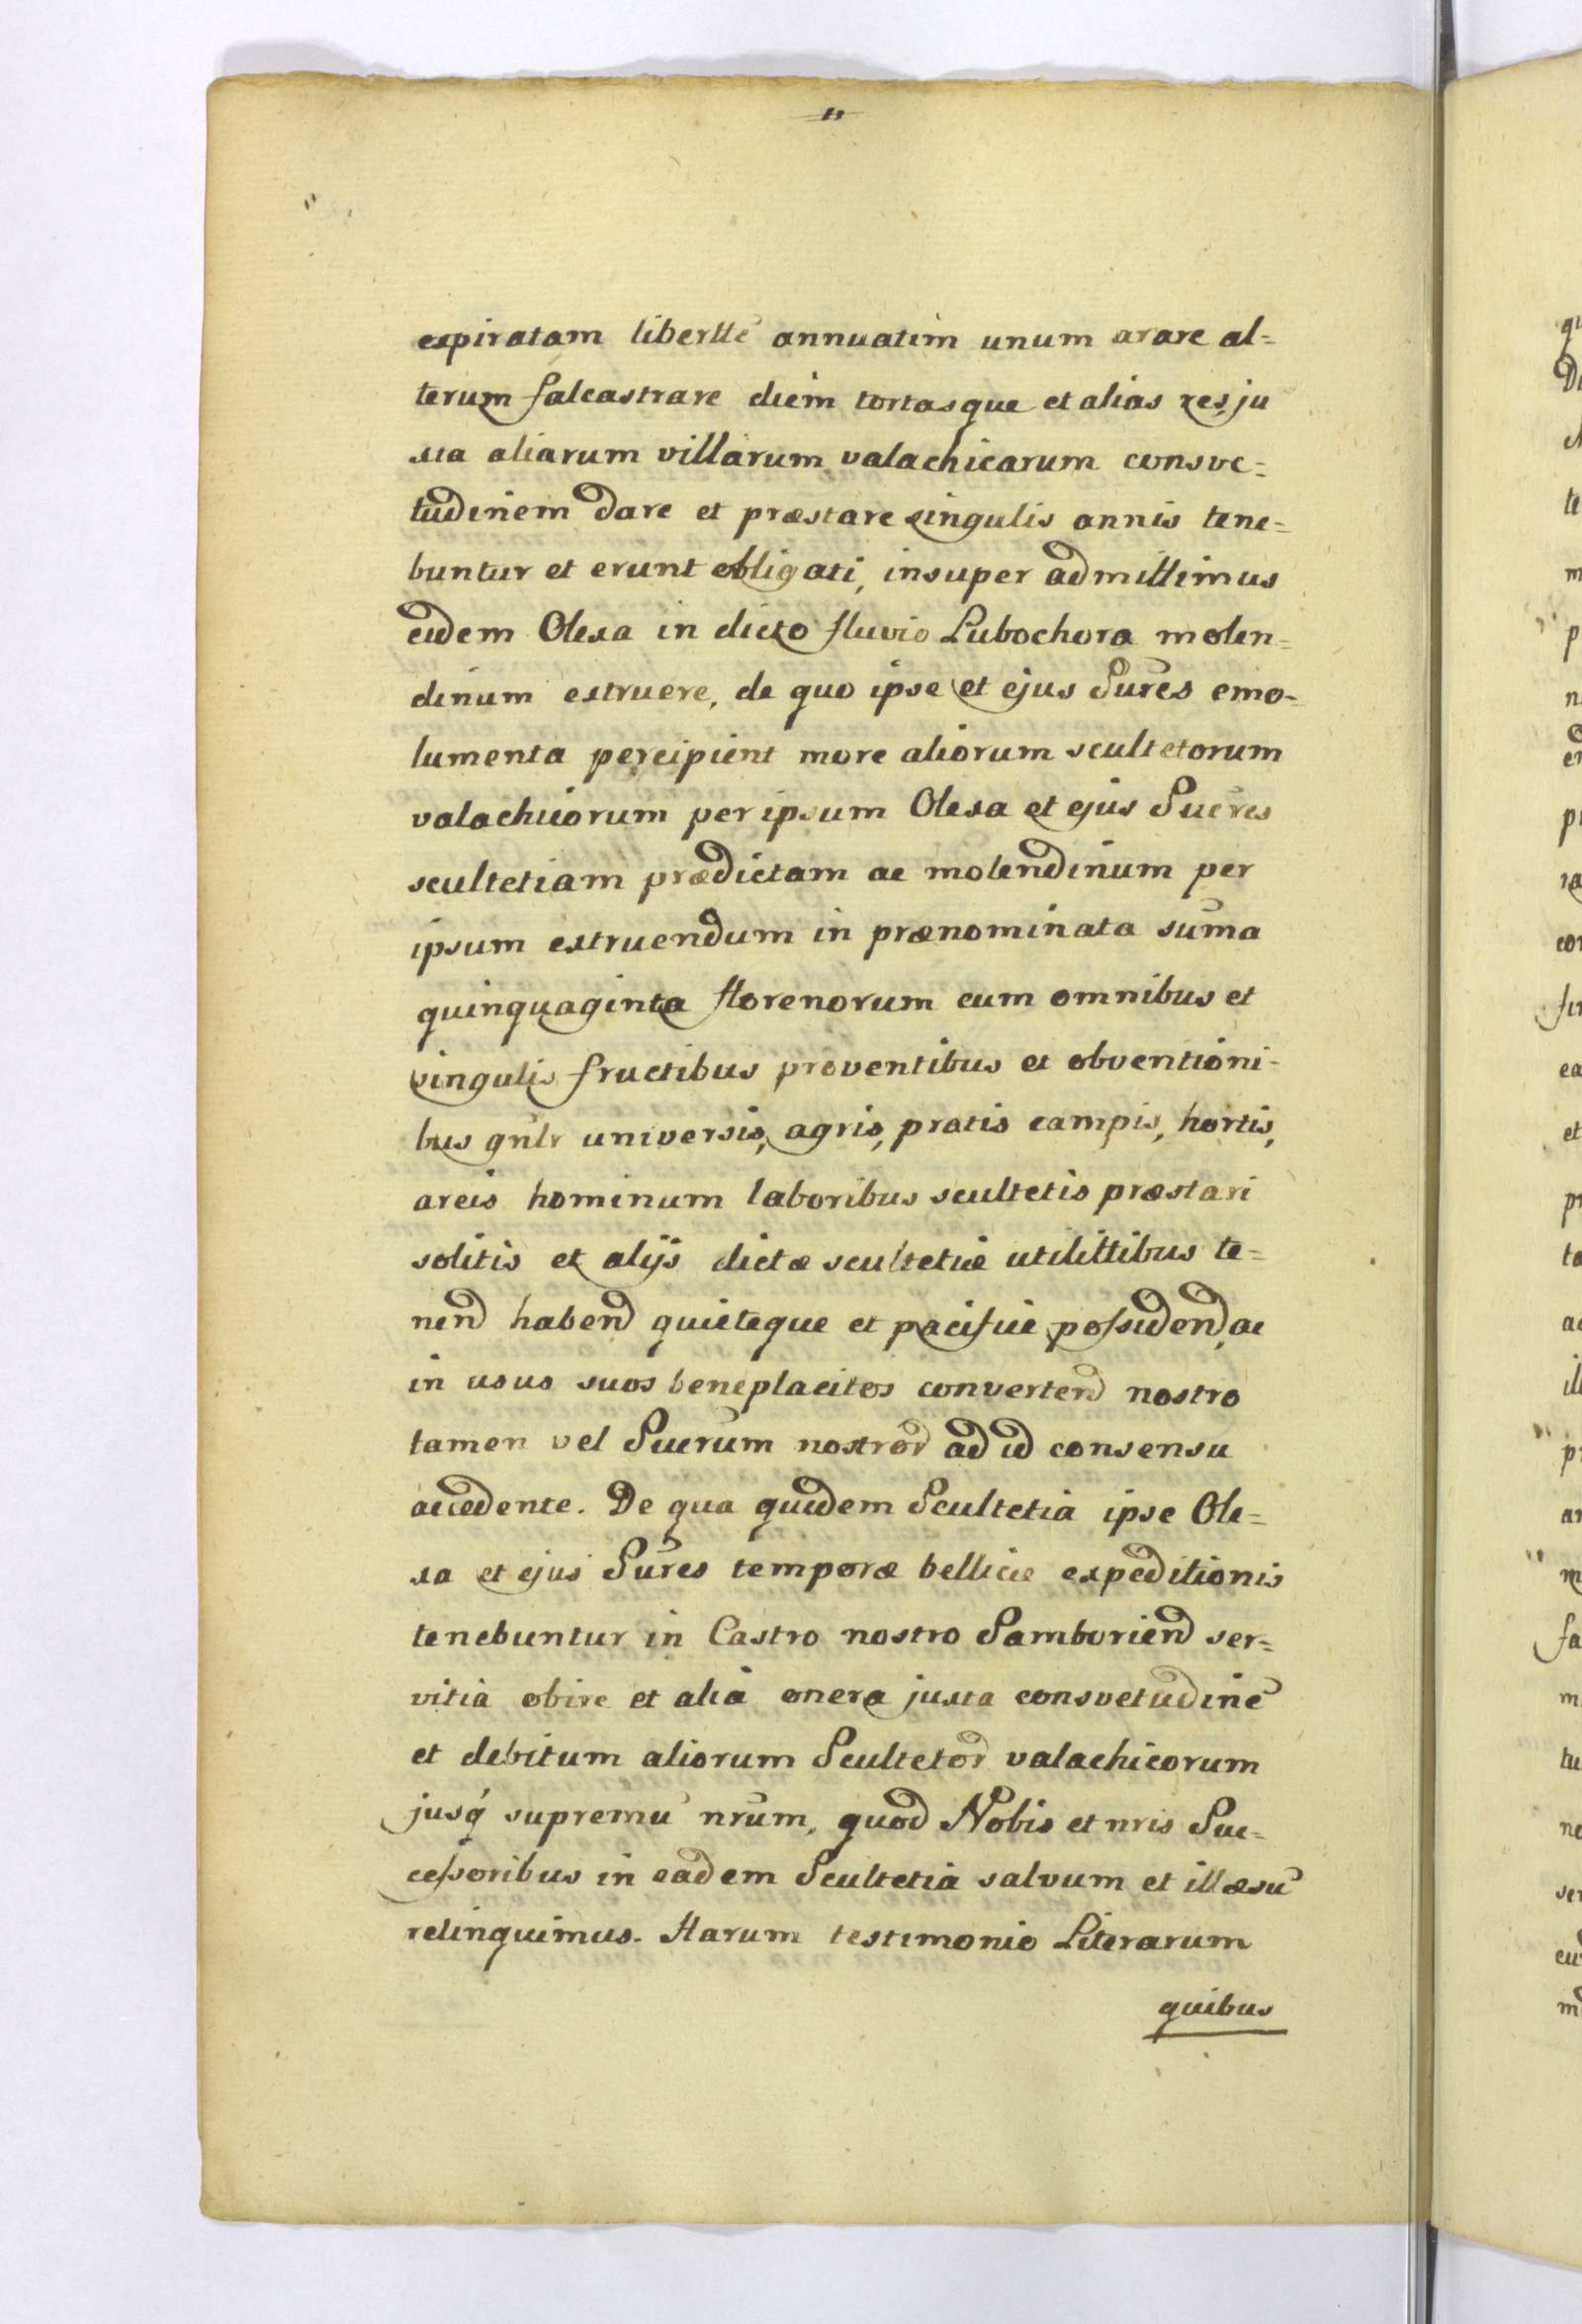 expiratam libertte annuatim unum arare al=
terum falcastrare diem tortasque et alias res ju
xta aliarum villarum valachicarum consve=
tudinem dare et præstare singulis annis tene=
buntur et erunt obligati, insuper admittimus
eidem Olexa in dicto fluvio Lubochora molen=
dinum extruere, de quo ipse et ejus Sures emo=
lumenta percipient more aliorum scultetorum
valachicorum per ipsum Olexa et ejus Sucres
scultetiam prædictam ac molendinum per
ipsum extruendum in prænominata suma
quinquaginta florenorum cum omnibus et
singulis fructibus proventibus et obventioni-
bus gnlr universis, agris, pratis campis, hortis,
areis hominum laboribus scultetis præstari
solitis et alijs dictæ scultetiæ utilittibus te=
nend habend quieteque et pacifice possidend, ac
in usus suos beneplacitos convertend nostro
tamen vel Sucrum nostror ad id consensu
accedente. De qua quidem Scultetia ipse Ole=
xa et ejus Sures temporæ bellicæ expeditionis
tenebuntur in Castro nostro Samboriend ser=
vitia obire et alia onera juxta consvetudinē
et debitum aliorum Scultetor valachicorum
jusq́ supremū nrum, quod Nobis et nris Suc=
cessoribus in eadem Scultetia salvum et illæsū
relinquimus. Harum testimonio Literarum
quibus